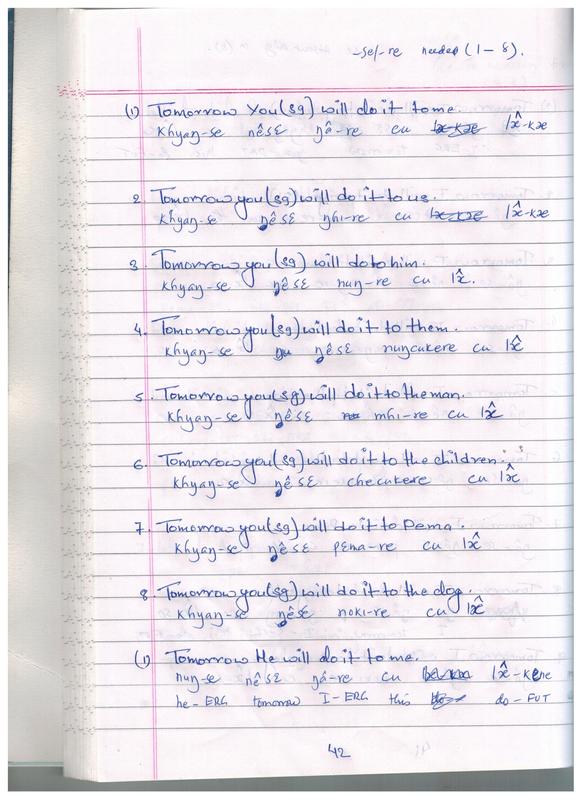 -se/-re needed (1-8).
(1) Tomorrow You(sg) will do it to me.
khyaŋ-se nêsɛ ŋâ-re cu læ̂-kæ
2. Tomorrow you(sg) will do it to us.
khyaŋ-se ŋêsɛ ŋhi-re cu læ̂-kæ
3. Tomorrow you(sg) will do to him.
khyaŋ-se ŋêsɛ nuŋ-re cu læ̂.
4. Tomorrow you(sg) will do it to them.
khyaŋ-se ŋêsɛ nuŋcukere cu læ̂
5. Tomorrow you(sg) will do it to the man.
khyaŋ-se ŋêsɛ mhi-re cu læ̂
6. Tomorrow you(sg) will do it to the children.
khyaŋ-se ŋêsɛ checukere cu læ̂
7. Tomorrow you(sg) will do it to Pema.
khyaŋ-se ŋêsɛ pɛma-re cu læ̂
8. Tomorrow you(sg) will do it to the dog.
khyaŋ-se ŋêsɛ noki-re cu læ̂
(1) Tomorrow He will do it to me.
nuŋ-se nêsɛ ŋâ-re cu
he-ERG tomorrow I-ERG this do-FUT
42